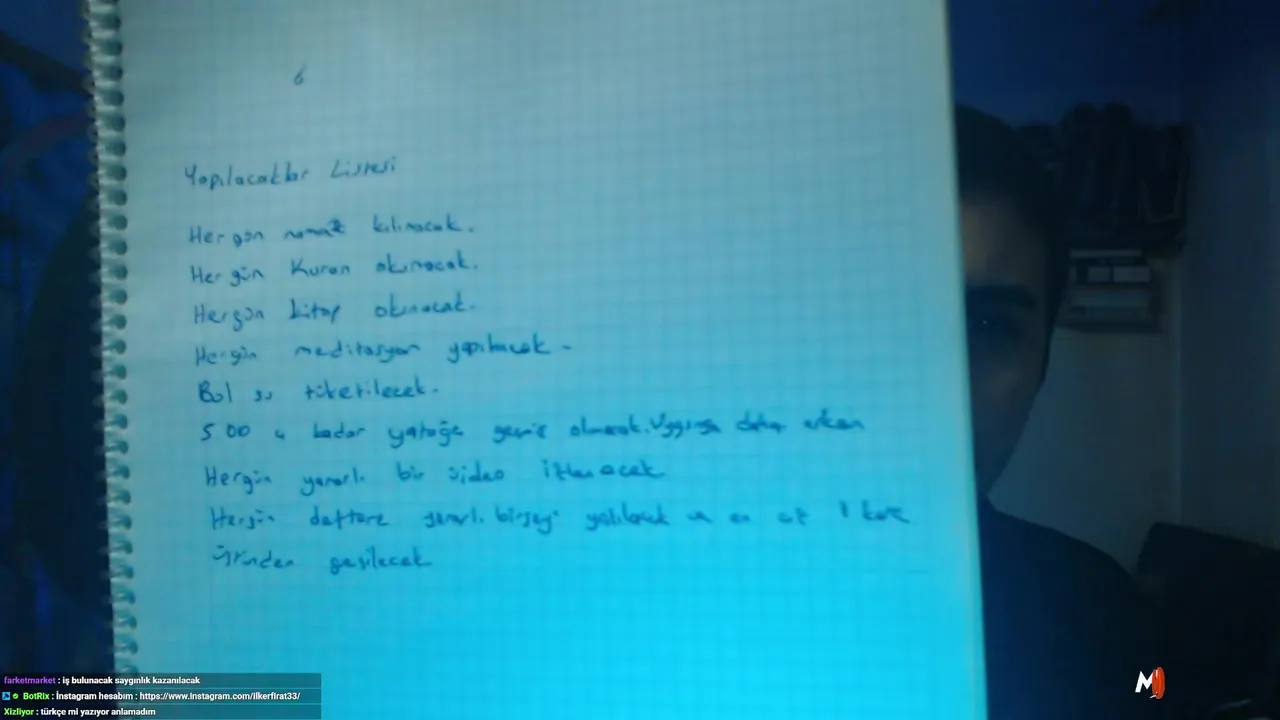 6
Yapılacaklar Listesi
Her gün namaz kılınacak.
Her gün Kuran okunacak.
Her gün kitap okunacak.
Her gün meditasyon yapılacak.
Bol su tüketilecek.
5 00 a kadar yatağa geçmiş olunacak. Uygunsa daha erken
Hergün yararlı bir video izlenecek
Hergün deftere yararlı birşey yazılacak ve en az 1 kere
üstünden geçilecek
farketmarket : iş bulunacak saygınlık kazanılacak
BotRix : İnstagram hesabım : https://www.instagram.com/ilkerfirat33/
Xizliyor : türkçe mi yazıyor anlamadım
M